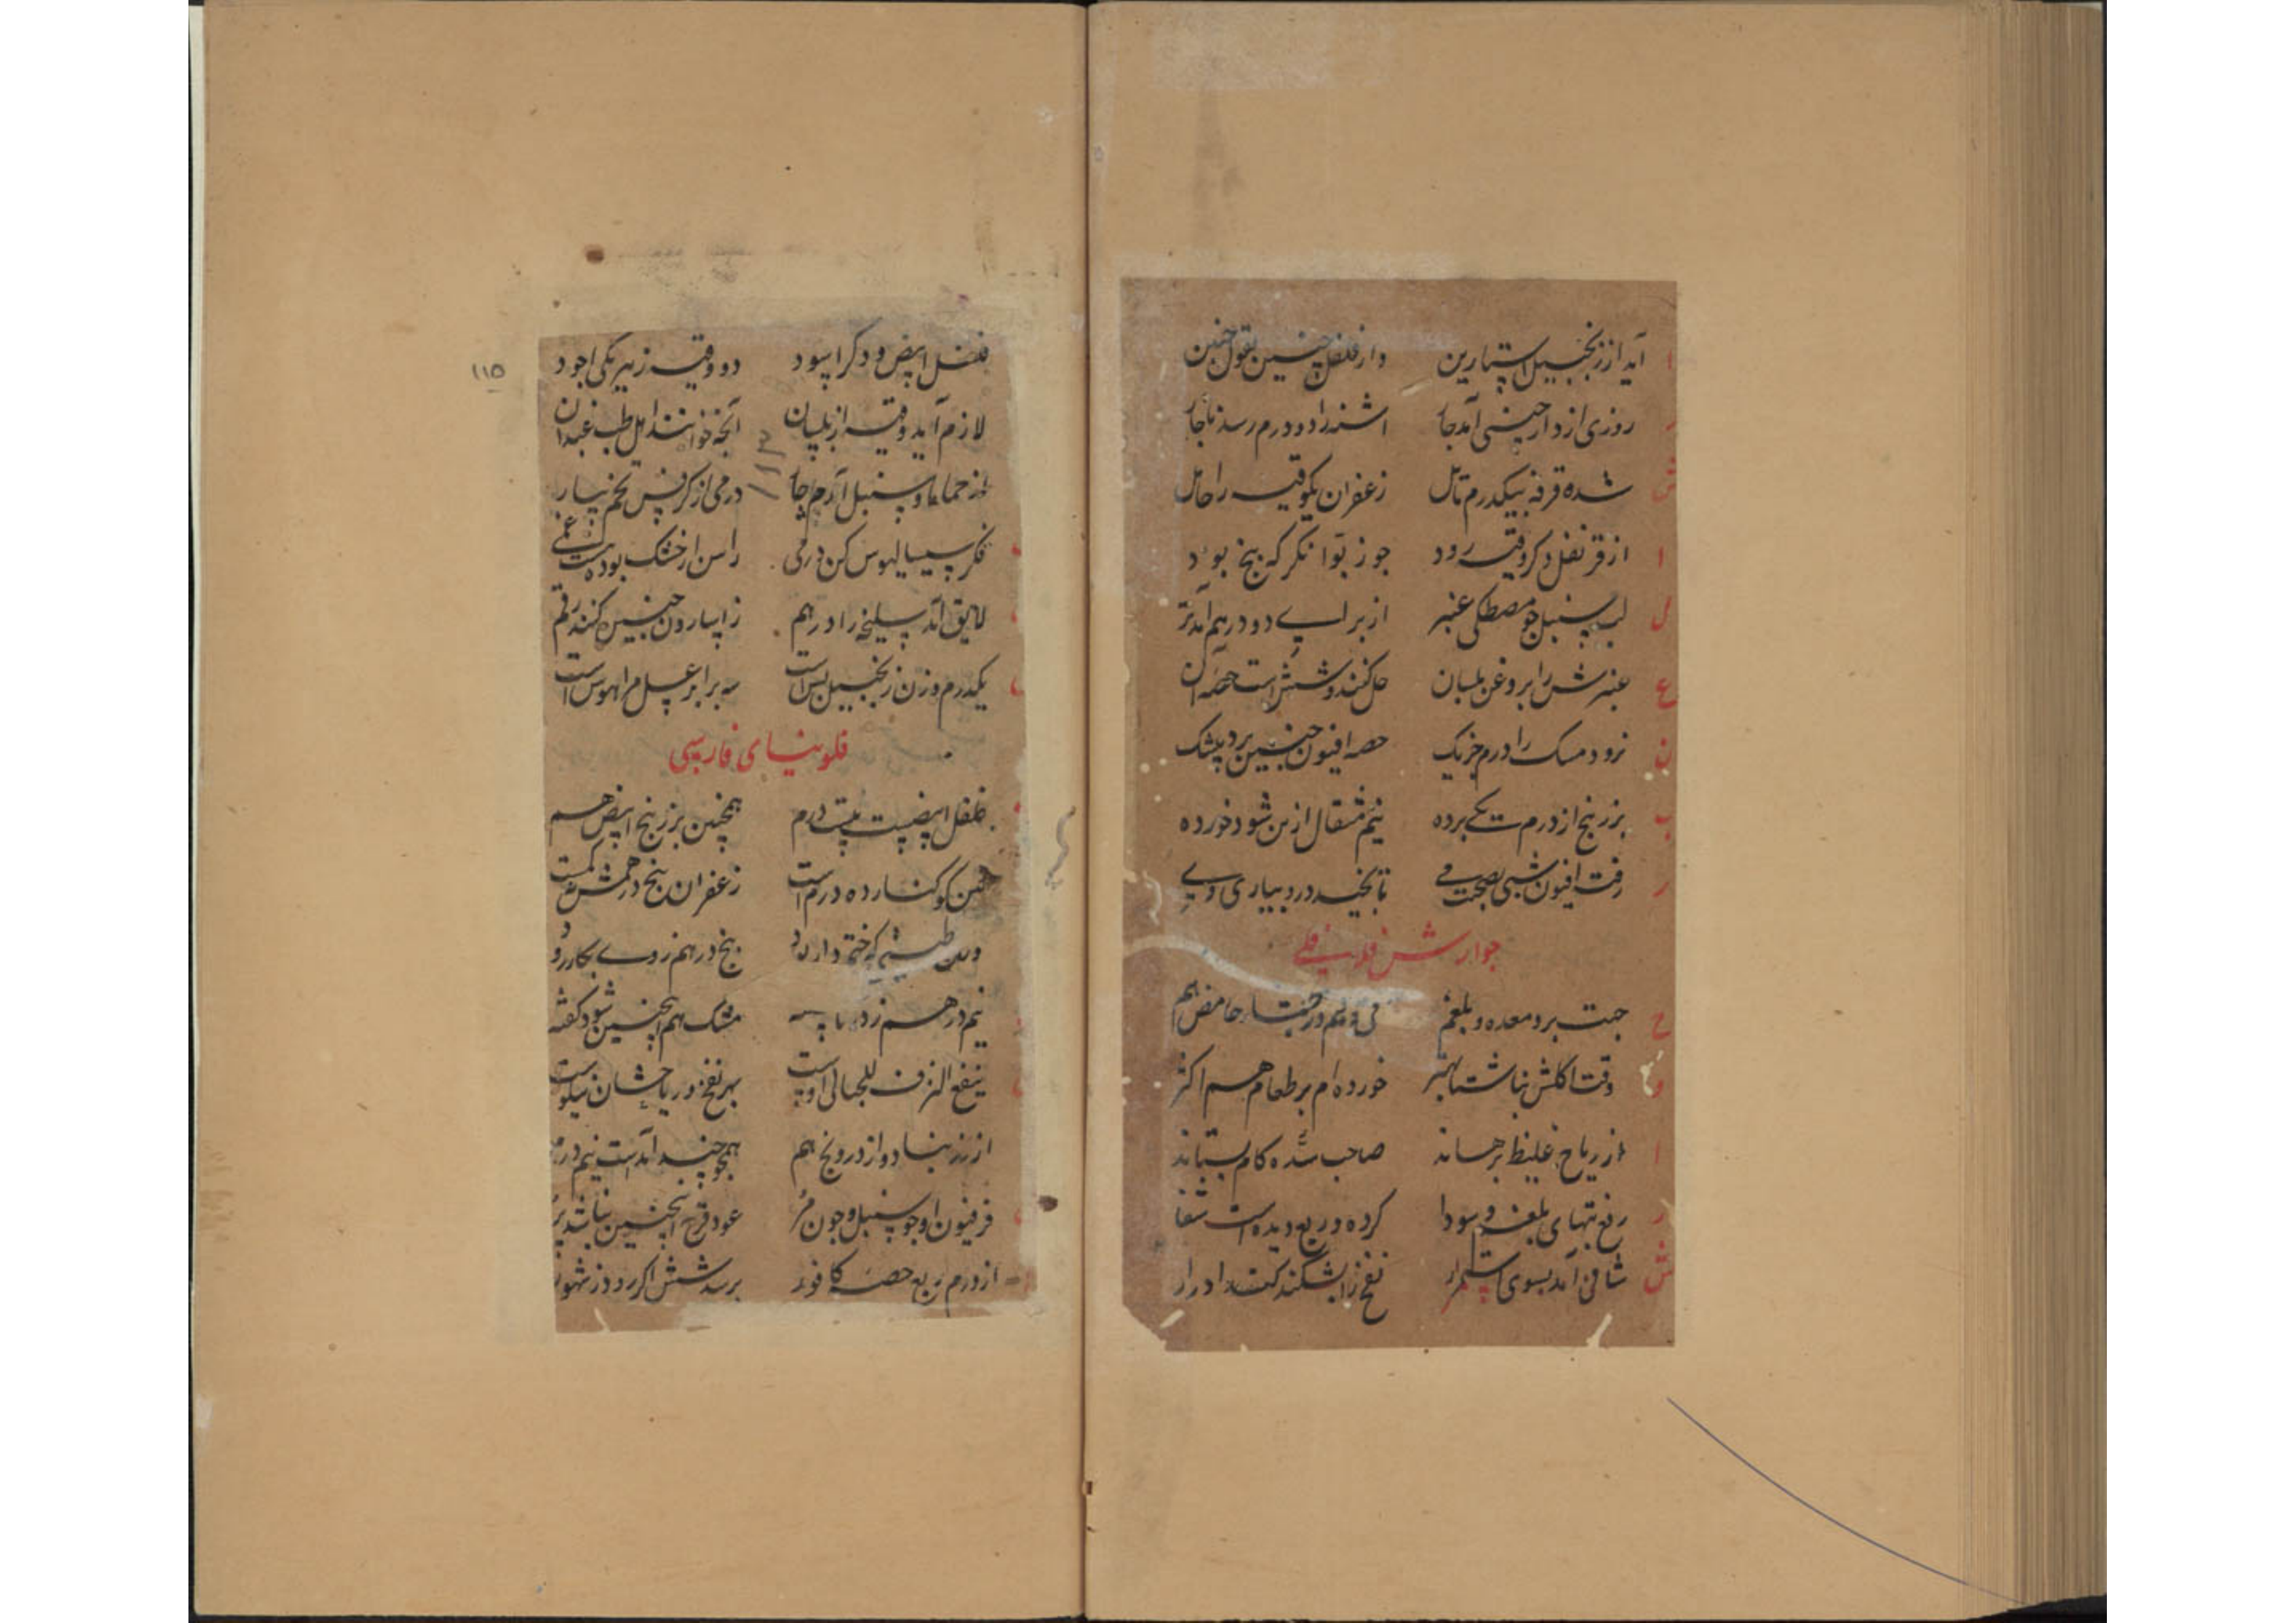 آید از زنجبیل استارین دار فلفل چنین بقول چنین
روزی از دارچینی آمد جا اشنه را دو درم رسد ناجار
شده قرفه بیکدرم مایل زعفران یکوقیه را حامل
از قرنفل دکر وقیه رود جوز بوا نکر که پنج بود
لب سنبل جو مصطکی عنبر از برای دو درهم آمد تر
عنبرش را بروغن بلسان حل کنند و شش است حصه آن
نرود مسک را درم جز یک حصه افیون چنین برد بیشک
بزربنج از درم یکی برده نیم مثقال ازین شود خورده
رفت افیون شبی بصحبت می تا بخیسد درو بیاری وی
جوارش فلافلی
جهت برد معده و بلغم حامض هم
وقت اکلش بناشتا بهتر خورده‌ام بر طعام هم اکثر
از ریاح غلیظ برهاند صاحب سده کام بستاند
رفع تبهای بلغم و سودا کرده در ربع دیده است شفا
شافی آمد بسوی استمرار نفخ را بشکند کند ادرار
۱۱۵
فلفل ابیض و دکر اسود دو وقیه ز هر یکی اجود
لازم آید وقیه از بلسان آنچه خوانند اهل طب عیدان
از حماما و سنبل آر بجا درمی از کرفس تخم بیار
فکر سیسالیوس کن درمی راسن ار خشک بود نیست غمی
لایق آمد سلیخه را درهم ز اسارون چنین کنند رقم
یکدرم وزن زنجبیل بس است سه برابر عسل مرا هوس است
فلونیای فارسی
فلفل ابیض بیست درم همچنین بزر بنج ابیض هم
کوکنار ده درم است زعفران پنج درهمش
که ختم دارد پنج درهم روی بکار
نیم درهم مشک هم اینچنین شود کفته
ینفع النزف للحبالی اوست بهر نفخ و ریاحشان نیکوست
از زرنباد و از درونج هم همچو جند آمدست نیم درم
فرفیون او جو سنبل و جون مر عود قرح اینچنین نباشد پر
از درم ربع حصه کافور برسدش اکر رود ز شهور